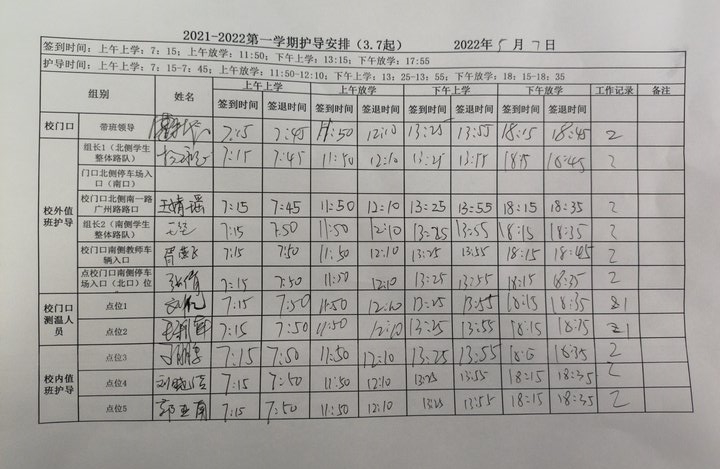 2021-2022第一学期护导安排（3.7起） 2022年5月7日
签到时间：上午上学：7：15；上午放学：11:50；下午上学：13:15；下午放学：17:55
护导时间：上午上学：7：15-7：45；上午放学：11:50-12:10；下午上学：13：25-13：55；下午放学：18：15-18：35
组别 姓名 上午上学 上午放学 下午上学 下午放学 工作记录 备注
签到时间 签退时间 签到时间 签退时间 签到时间 签退时间 签到时间 签退时间
校门口 带班领导 7:15 7:45 11:50 12:10 13:25 13:55 18:15 18:45 2
校外值班护导
组长1（北侧学生整体路队） 7:15 7:45 11:50 12:10 13:25 13:55 18:15 18:45 2
门口北侧停车场入口（南口）
校门口北侧南一路广州路路口 王婧瑶 7:15 7:45 11:50 12:10 13:25 13:55 18:15 18:35 2
组长2（南侧学生整体路队） 7:15 7:50 11:50 12:10 13:25 13:55 18:15 18:35 2
校门口南侧教师车辆入口 7:15 7:50 11:50 12:10 13:25 13:55 18:15 18:45 2
点校门口南侧停车场入口（北口）位 张倩 7:15 7:50 11:50 12:10 13:25 13:55 18:15 18:35 2
校门口测温人员
点位1 7:15 7:50 11:50 12:10 13:25 13:55 18:15 18:35 1
点位2 7:15 7:50 11:50 12:10 13:25 13:55 18:15 18:35 1
校内值班护导
点位3 7:15 7:50 11:50 12:10 13:25 13:55 18:15 18:35 2
点位4 刘晓洁 7:15 7:50 11:50 12:10 13:25 13:55 18:15 18:35 2
点位5 郭亚南 7:15 7:50 11:50 12:10 13:25 13:55 18:15 18:35 2